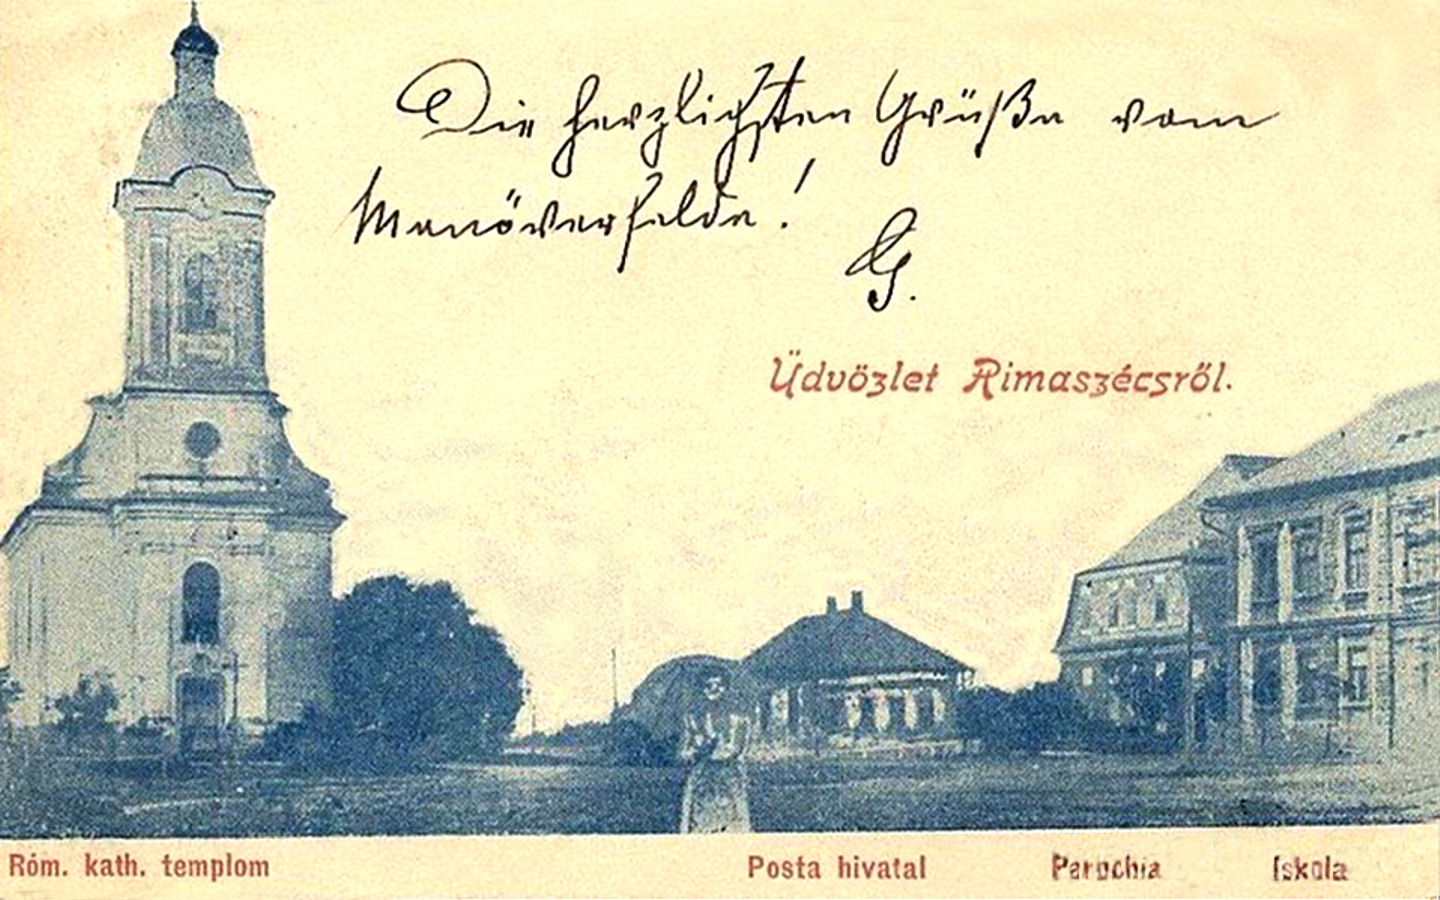 Die herzlichsten Grüße vom
Manöverfelde!
G.
Üdvözlet Rimaszécsről.
Róm. kath. templom Posta hivatal Parochia Iskola